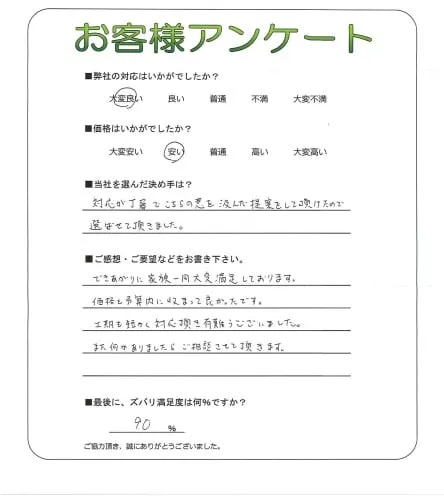 お客様アンケート
■弊社の対応はいかがでしたか?
大変良い 良い 普通 不満 大変不満
■価格はいかがでしたか?
大変安い 安い 普通 高い 大変高い
■当社を選んだ決め手は?
対応が丁寧でこちらの意を汲んだ提案をして頂けたので
選ばせて頂きました。
■ご感想・ご要望などをお書き下さい。
できあがりに家族一同大変満足しております。
価格も予算内に収まって良かったです。
工期も短かく対応頂き有難うございました。
また何かありましたらご相談させて頂きます。
■最後に、ズバリ満足度は何%ですか?
90 %
ご協力頂き、誠にありがとうございました。